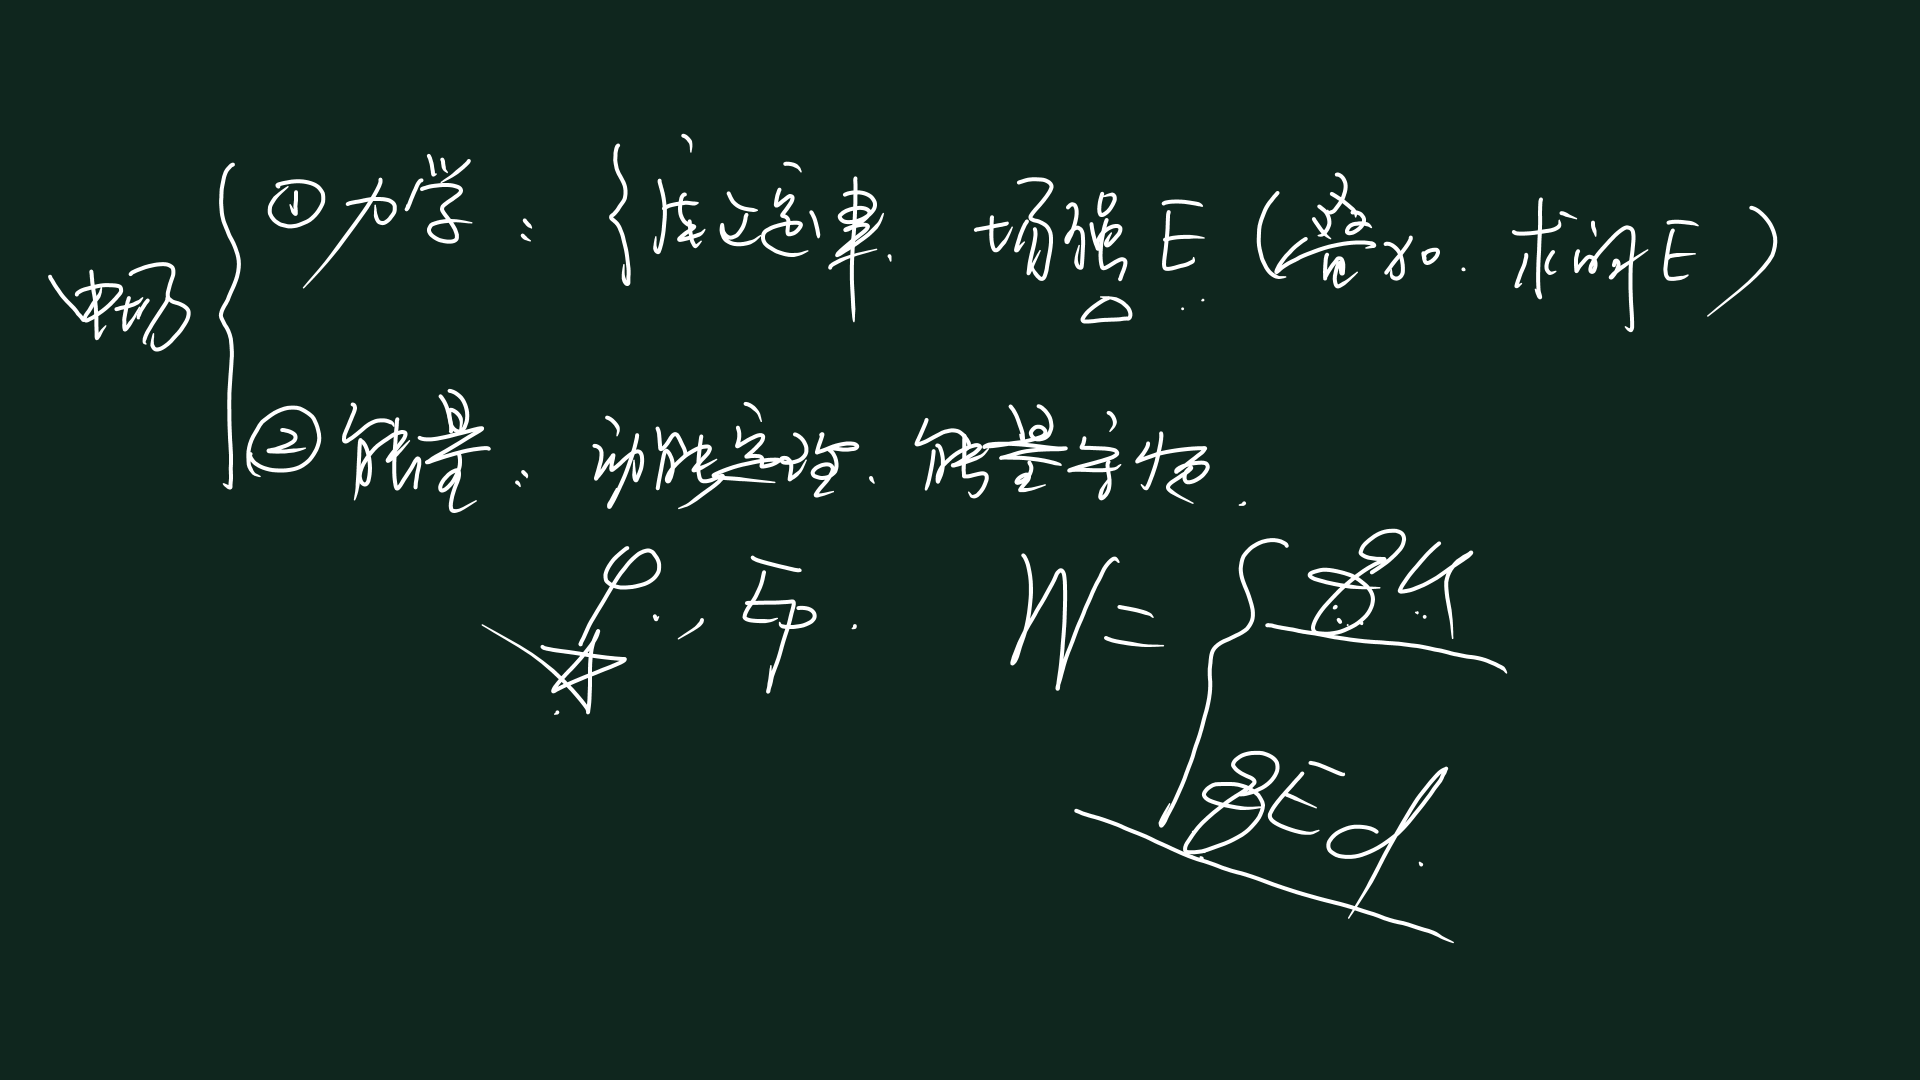 ①力学：{库定律. 场强E(叠加. 求解E)
电场{
②能量：动能定理. 能量守恒.
φ, Ep. W={qU
qEd.